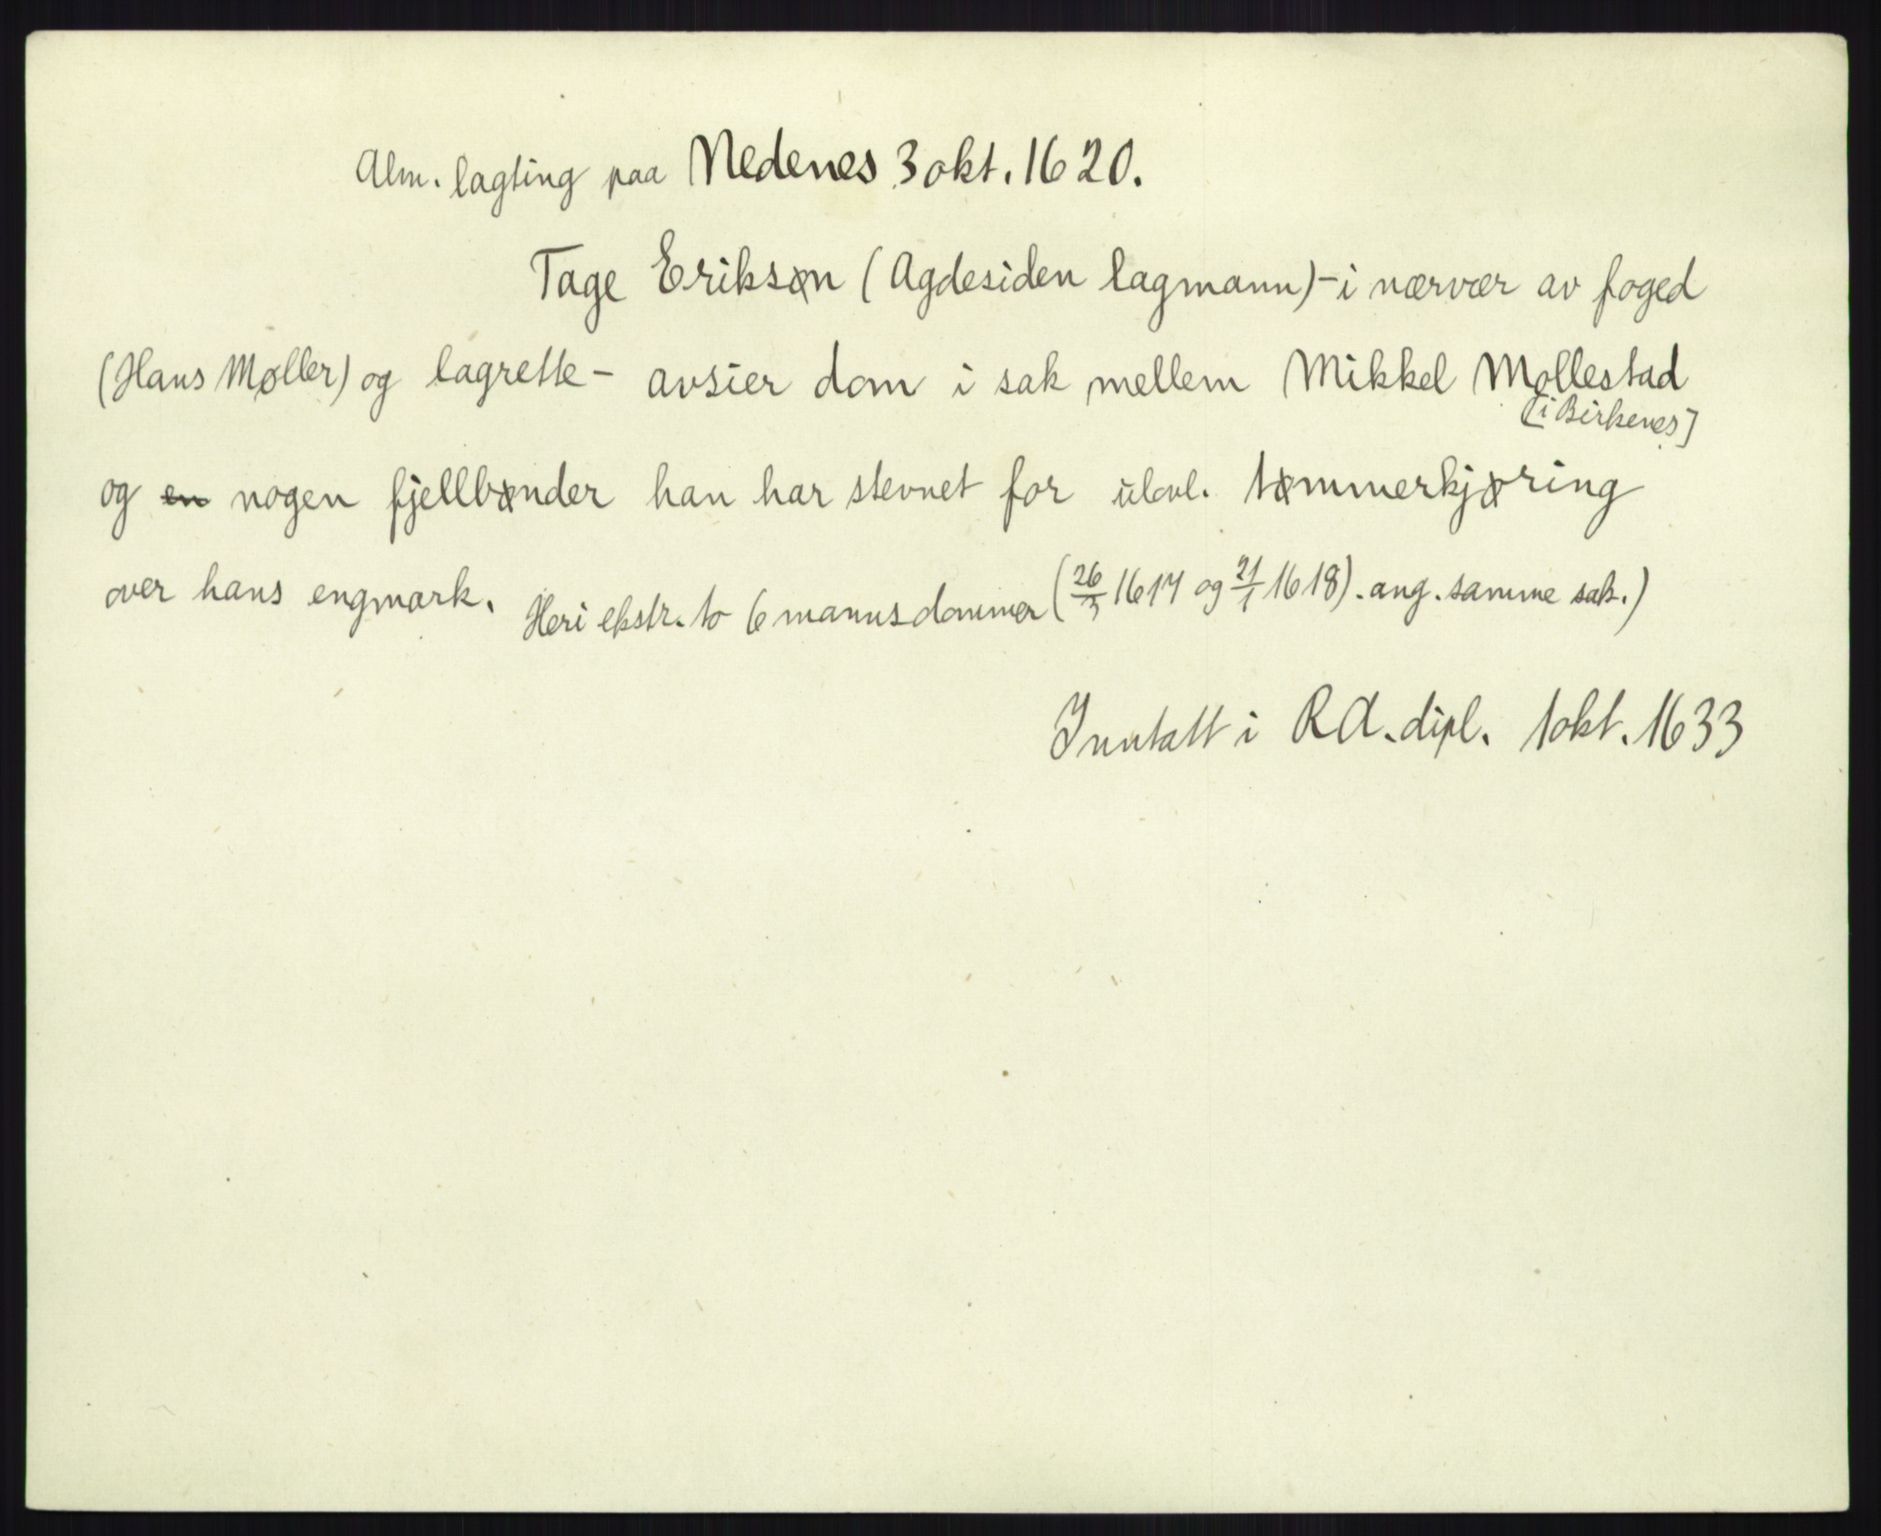 Alm. lagting paa Nedenes 3 okt. 1620.
Tage Eriksøn (Agdesiden lagmann) - i nærvær av foged
(Hans Møller) og lagrette - avsier dom i sak mellem Mikkel Mollestad
[i Birkenes]
og en nogen fjellbønder han har stevnet for ulovl. tømmerkjøring
over hans engmark. Heri ekstr. to 6 mannsdommer (26/3 1617 og 21/1 1618). ang. samme sak.)
Inntatt i RA. dipl. 1 okt. 1633